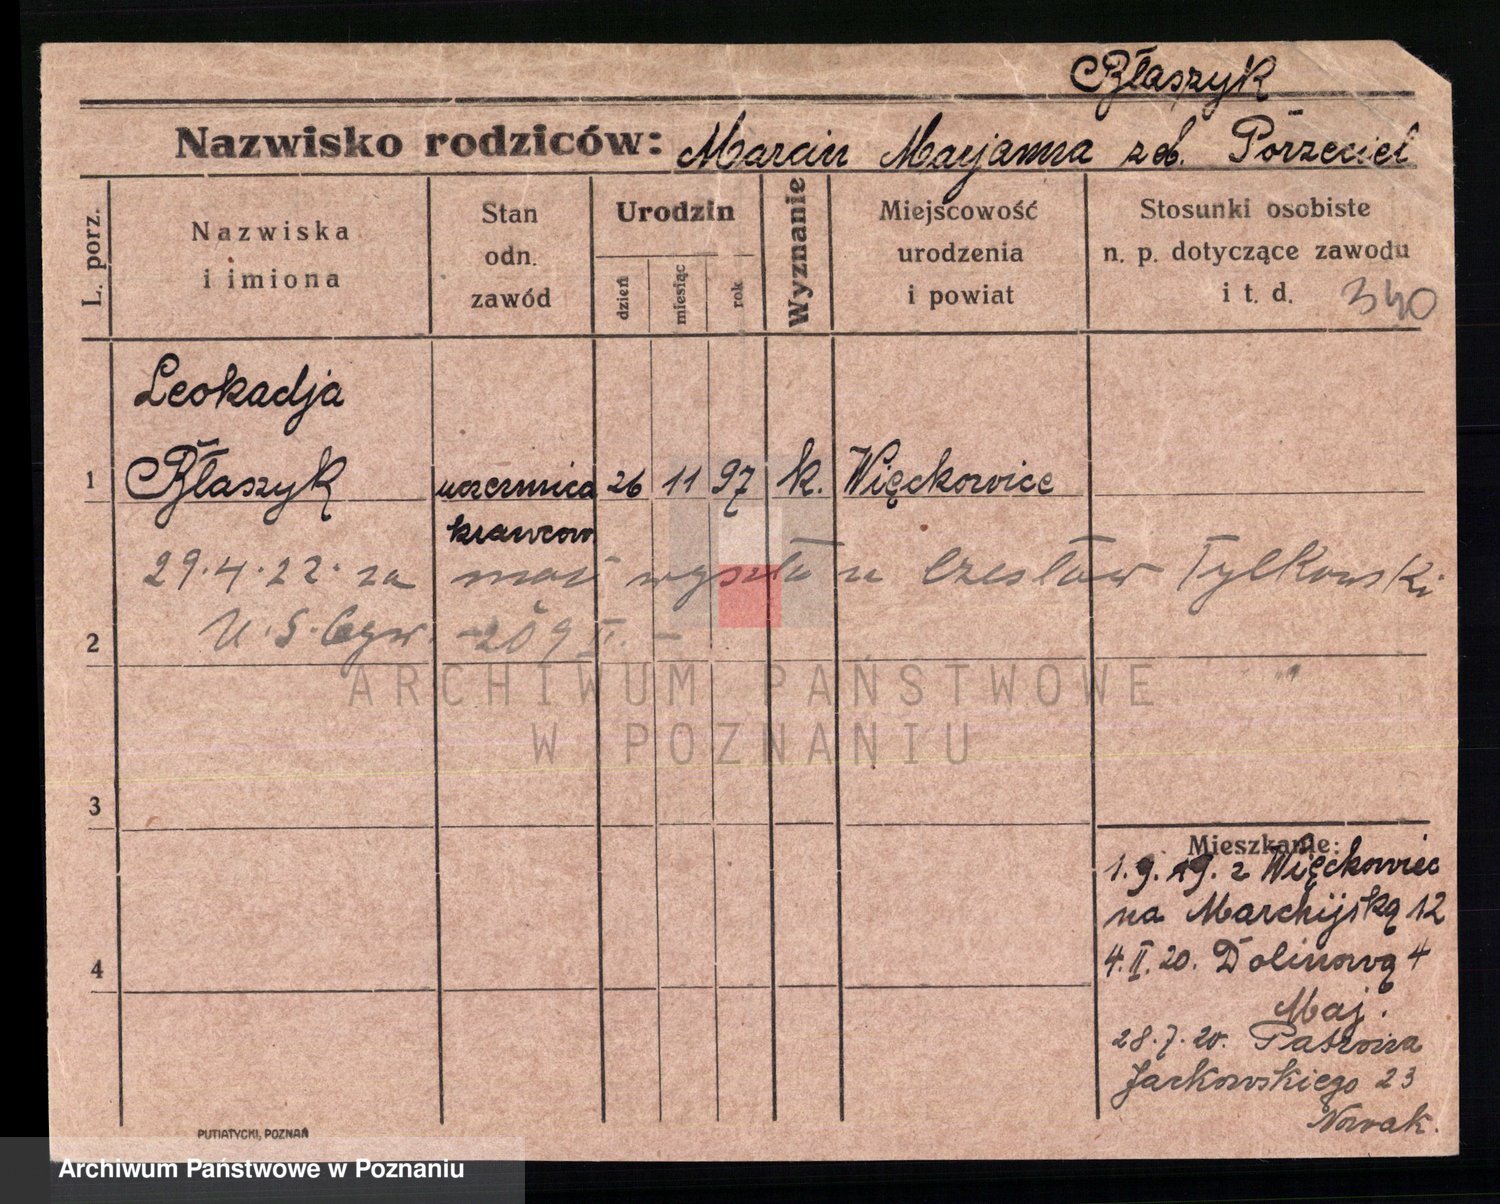 Błaszyk
Nazwisko rodziców: Marcin Marjanna zd. Porzeciel
L. porz.
Nazwiska
i imiona
Stan
odn.
zawód
Urodzin
dzień
miesiąc
rok
Wyznanie
Miejscowość
urodzenia
i powiat
Stosunki osobiste
n. p. dotyczące zawodu
i t. d.
340
Leokadja
1 Błaszyk uczennica 26 11 97 k. Więckowice
krawcow
29.4.22. za mąż wyszła u Czesław Tylkowski
U. S. 209 II. –
2
ARCHIWUM PAŃSTWOWE
W POZNANIU
3
4
Mieszkanie:
1.9.19. z Więckowic
na Marchijską 12
4.II.20. Dolinową 4
Maj.
28.7.20. Patrona
Jackowskiego 23
Nowak.
PUTIATYCKI, POZNAŃ
Archiwum Państwowe w Poznaniu